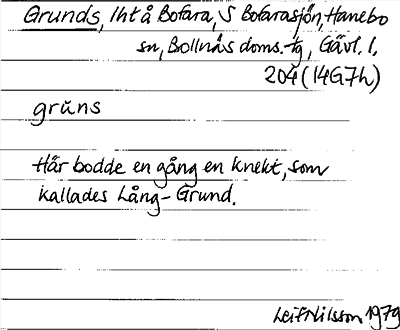 Grunds, lht å Bofara, S Bofarasjön, Hanebo
sn, Bollnäs doms. tg, Gävl. l.
204 (14G7h)
grŭns
Här bodde en gång en knekt, som
kallades Lång-Grund.
Leif Nilsson 1979